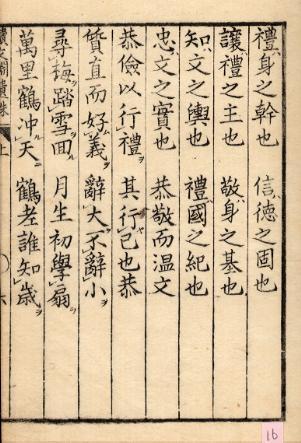 禮身之幹也　信德之固也
讓禮之主也　敬身之基也
知文之輿也　禮國之紀也
忠文之實也　恭敬而温文
恭儉以行禮　其行己也恭
質直而好義ヲ　辭大不辭小ヲ
尋梅踏雪回ル　月生初學扇ヲ
萬里鶴冲天ニ　鶴老誰知歳ヲ
上
六
16